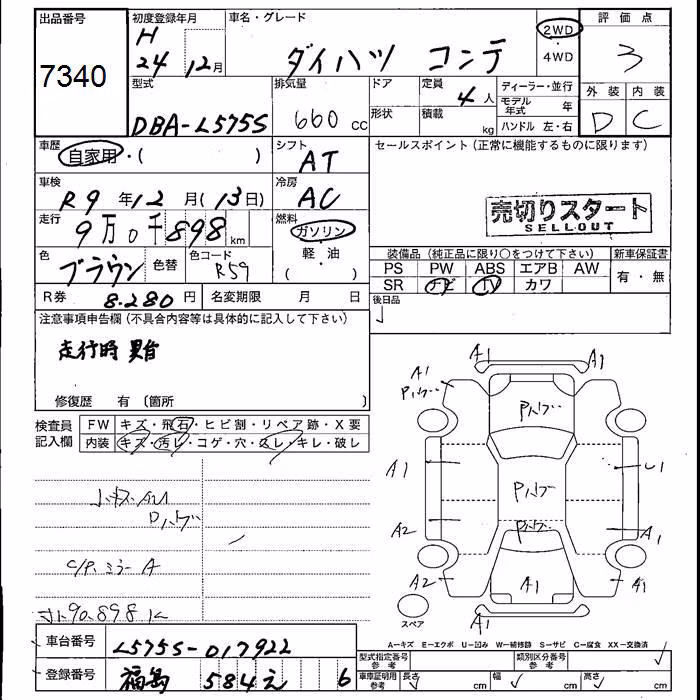 出品番号
7340
初度登録年月
H
24 12月
車名・グレード
ダイハツ コンテ
2WD
・
4WD
評価点
3
外装 内装
D C
型式
DBA-L575S
排気量
660 cc
ドア
形状
定員
4人
積載
kg
ディーラー・並行
モデル年式 年
ハンドル 左・右
車歴
自家用・( )
シフト
AT
セールスポイント(正常に機能するものに限ります)
売切りスタート
SELLOUT
車検
R9年12月(13日)
冷房
AC
走行
9万0千898km
燃料
ガソリン
・
軽・油
( )
色
ブラウン
色替
色コード
R59
R券 8.280円
名変期限 月 日
装備品(純正品に限り○をつけて下さい)
PS PW ABS エアB AW
SR ナビ TV カワ
新車保証書
有・無
後日品
注意事項申告欄(不具合内容等は具体的に記入して下さい)
走行時 異音
修復歴 有〔箇所 〕
検査員
記入欄
FW キズ・飛石・ヒビ割・リペア跡・X要
内装 キズ・汚レ・コゲ・穴・スレ・キレ・破レ
C/P.ミラー A
90.898K
A1 A1
A1
Pハゲ
A1 U1
Pハゲ
A2 A1
Pハゲ
A2 A1 A1
A1
スペア
A=キズ E=エクボ U=凹み W=補修跡 S=サビ C=腐食 XX=交換済
車台番号 L575S-017922
登録番号 福島 584え 6
型式指定番号
参考
類別区分番号
参考
車庫証明用
参考
長さ cm 幅 cm 高さ cm